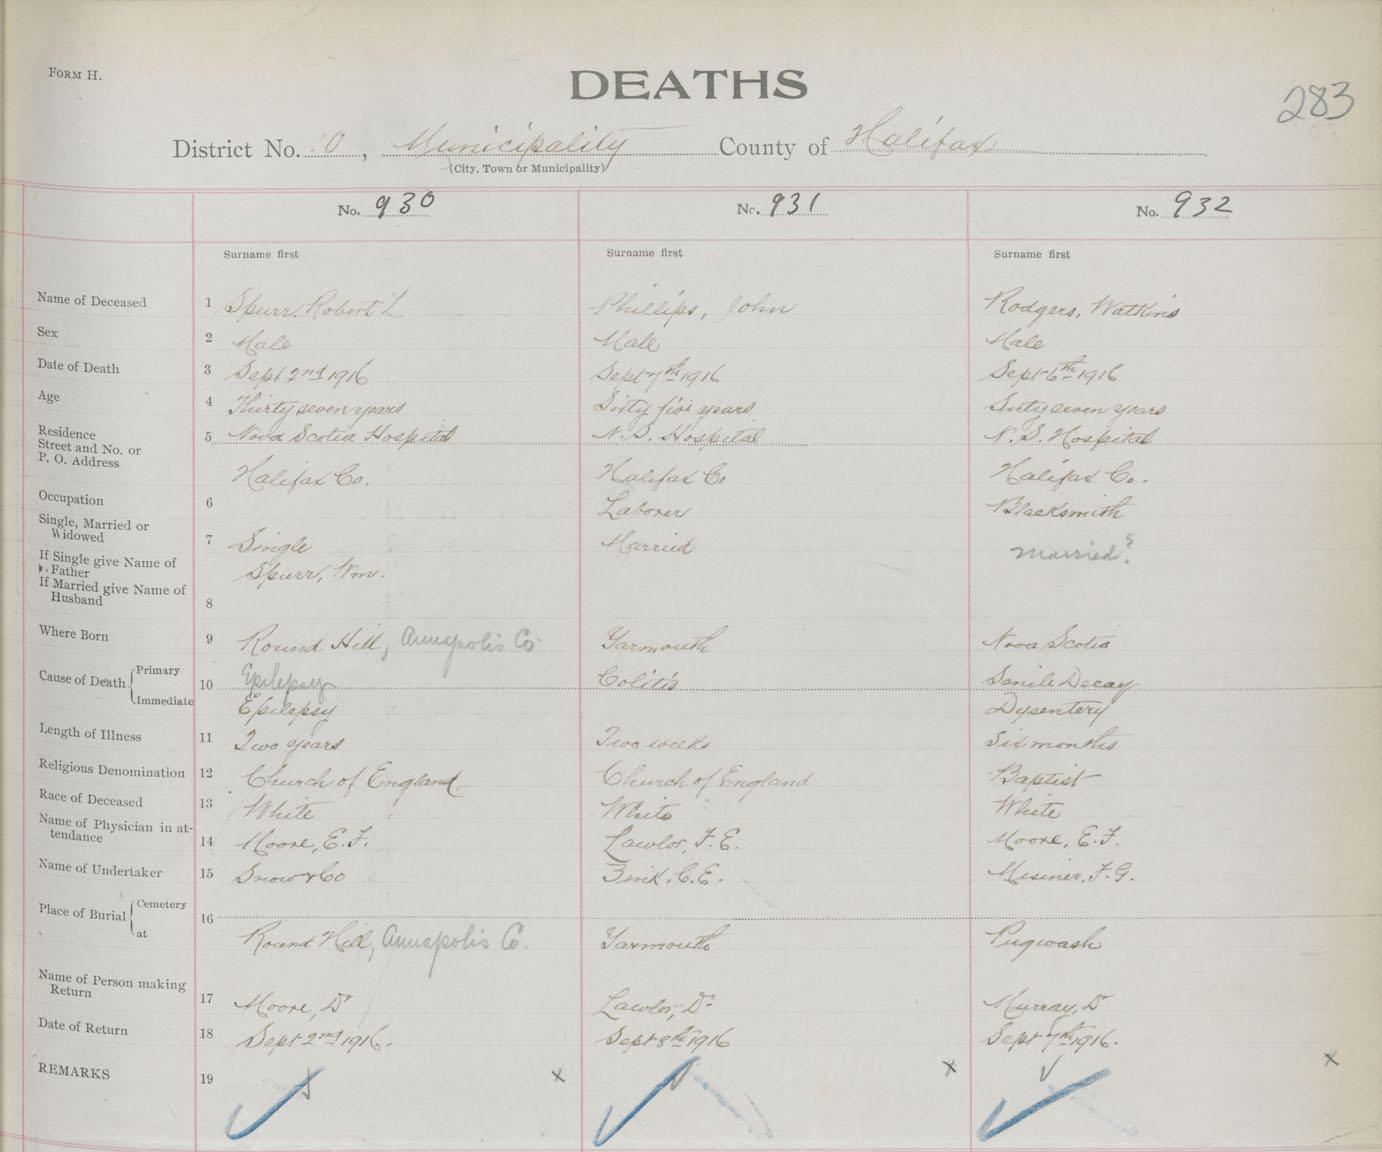 FORM H.
DEATHS
283
District No. 10, Municipality County of Halifax
(City, Town or Municipality)
No. 930 No. 931 No. 932
Surname first Surname first Surname first
Name of Deceased 1 Spurr, Robert L Phillips, John Rodgers, Watkins
Sex 2 Male Male Male
Date of Death 3 Sept 2nd 1916 Sept 7th 1916 Sept 6th 1916
Age 4 Thirty seven years Sixty five years Sixty seven years
Residence
Street and No. or
P. O. Address
5 Nova Scotia Hospital N. S. Hospital N. S. Hospital
Halifax Co. Halifax Co Halifax Co.
Occupation 6 Laborer Blacksmith
Single, Married or
Widowed
7 Single Married Married?
If Single give Name of
Father
Spurr, Wm.
If Married give Name of
Husband
8
Where Born 9 Round Hill, Annapolis Co Yarmouth Nova Scotia
Cause of Death Primary 10 Epilepsy Colitis Senile Decay
Immediate Epilepsy Dysentery
Length of Illness 11 Two years Two weeks Six months
Religious Denomination 12 Church of England Church of England Baptist
Race of Deceased 13 White White White
Name of Physician in at-
tendance
14 Moore, E. F. Lawlor, F. E. Moore, E. F.
Name of Undertaker 15 Snow & Co Zink, C. E. Misiner, F. G.
Place of Burial Cemetery 16
at Round Hill, Annapolis Co. Yarmouth Pugwash
Name of Person making
Return
17 Moore, Dr Lawlor, Dr Murray, Dr
Date of Return 18 Sept 2nd 1916. Sept 8th 1916 Sept 7th 1916.
REMARKS 19 x x x